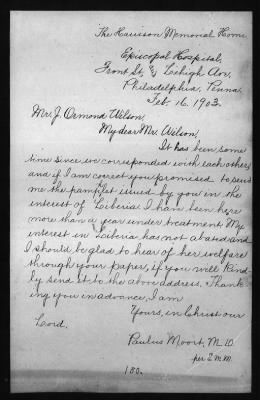 The Harrison Memorial Home
Episcopal Hospital,
Front St, & Lehigh Av.
Philadelphia, Penna.
Feb. 16. 1903.
Mr. J. Ormond Wilson,
My dear Mr. Wilson,
It has been some
time since we corresponded with each other,
and if I am correct you promised to send
me the pamflet issued by you in the
interest of Liberia. I have been here
more than a year under treatment. My
interest in Liberia has not abated, and
I should be glad to hear of her welfare
through your paper, if you will kind-
ly send it to the above address. Thank-
ing you in advance, I am
Yours, in Christ our
Lord.
Paulus Moort, M. D.
per
180.